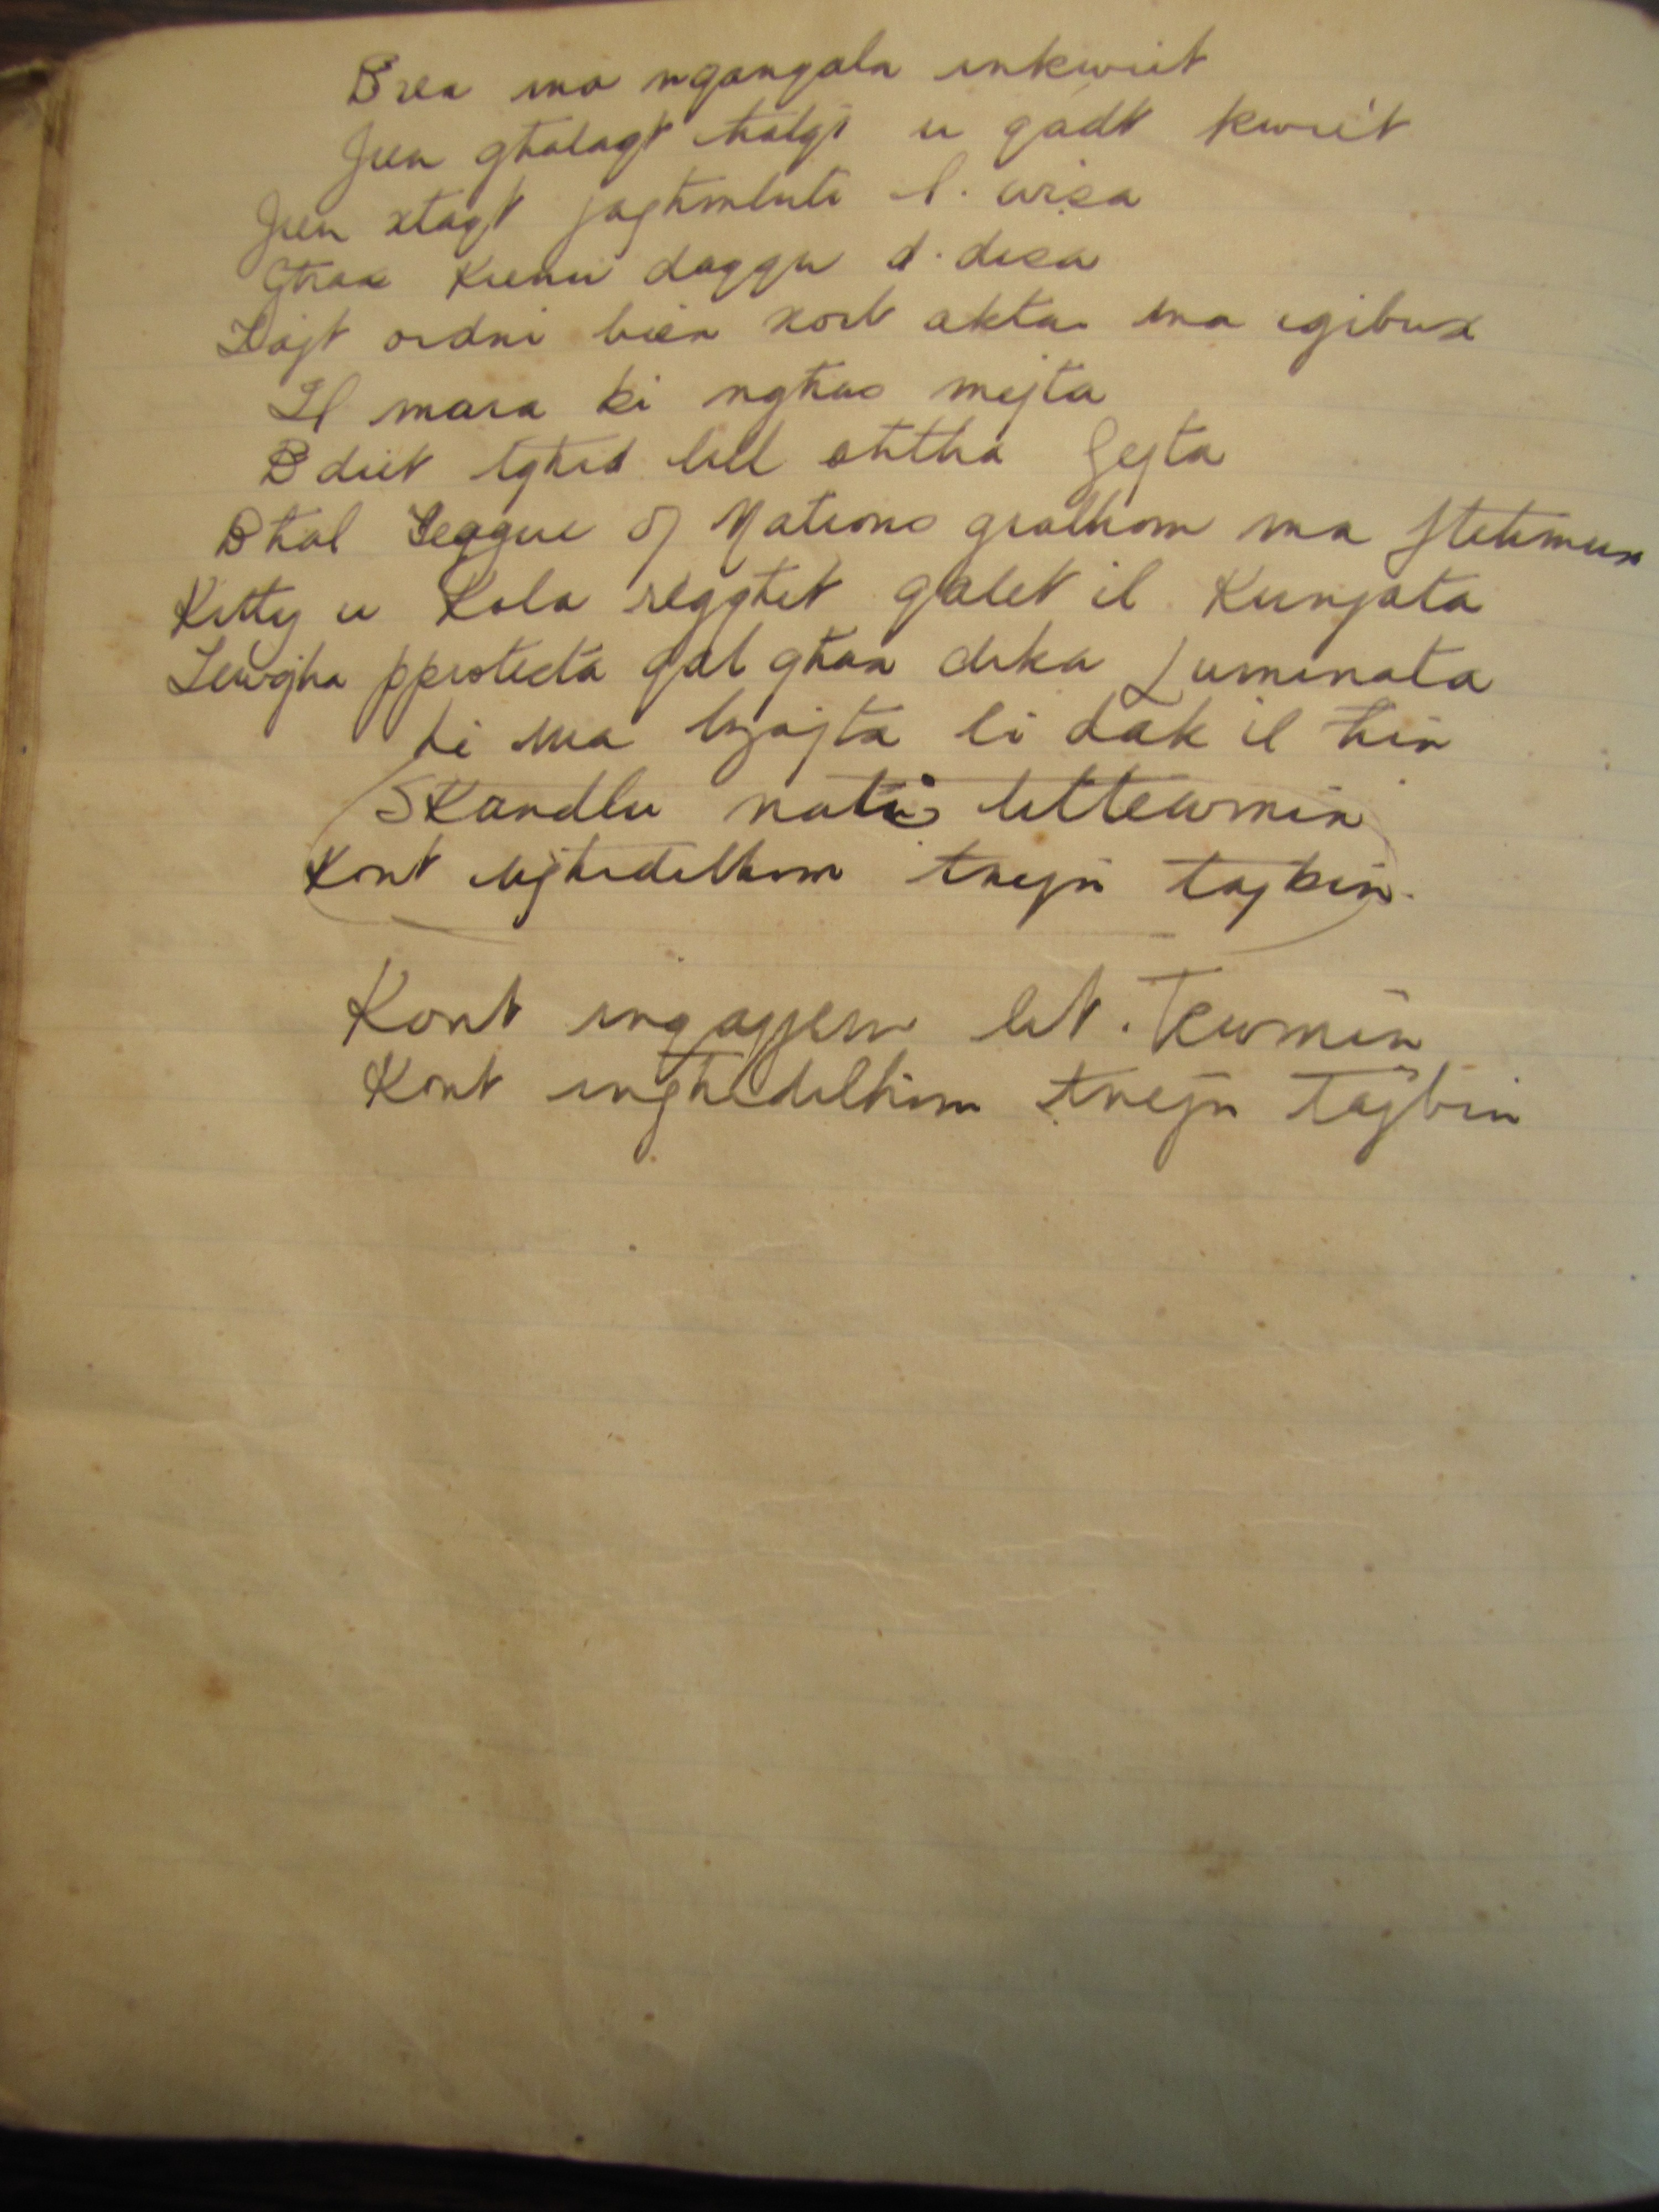 Biex ma nqanqala inkwiet
Jien għalaqt ħalqi u qadt kwiet
Jien xtaqt jagħmluli l. wisa
Għax kienu daqqu d. disa
Zdiġt ordni biex xort akta ma iġibux
Il mara ki ngħas mejta
Bdiet tgħid lill oħtha Ġejta
Bħal League of Nations qralhom ma ftehmux
Kitty u Kola reġgħet qalet il Kunjata
Lewġha pprotesta qal għax dika Luminata
hi ma bżajta li dak il ħin
Skandlu nati littewmin
Kont ngħidilhom tnejn tajbin.
Kont inqajjem lit. Tewmin
Kont ingħidilhom tnejn tajbin